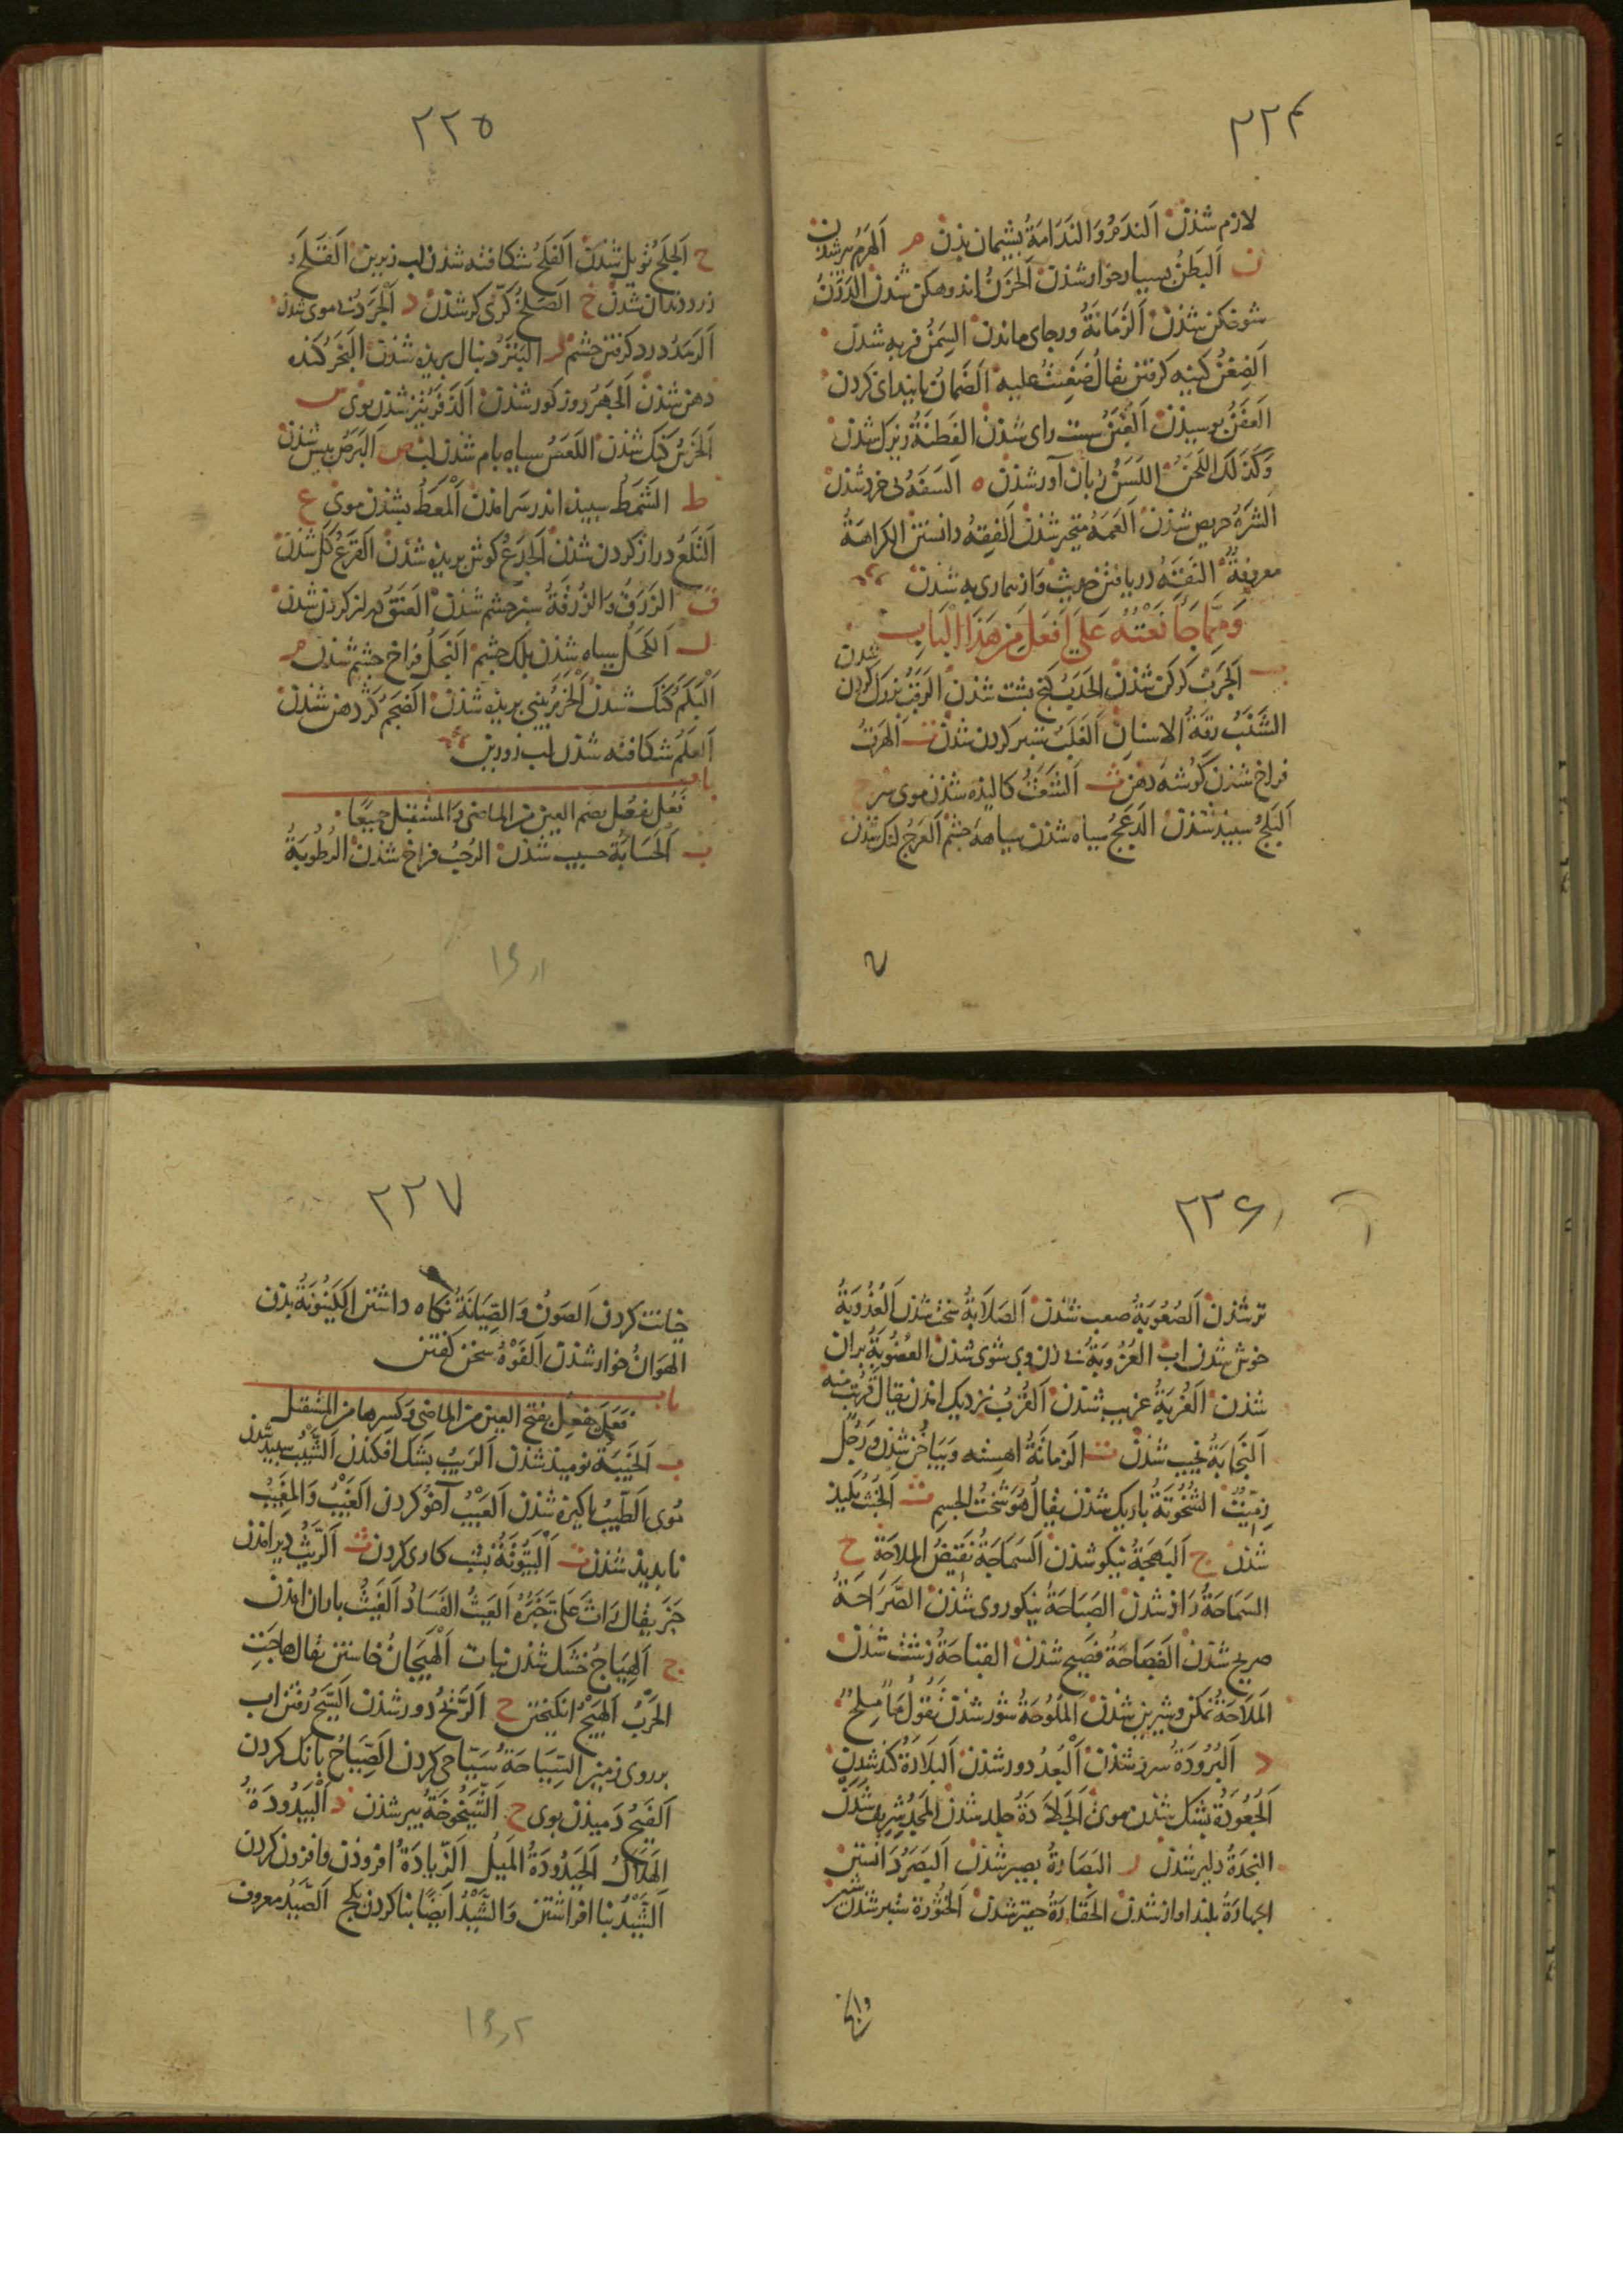 ۲۲۴
لازم شذن اَلندَمُ وَالنَدَامَةُ پشیمان بذن م اَلهَرَمُ پیر شدن
ن اَلبَطَنُ بسیار خوار شذن اَلحَزَنُ اندوهکن شذن الدَرَنُ
شوخکن شذن اَلزَمَانَةُ ورجای ماندن السِمَنُ فربه شدن
اَلضِغْنُ کینه کرفتن یقالُ ضَغِنْتُ علیه اَلضَمانُ پایندانی کردن
اَلعَفَنُ پوسیذن اَلغَبَنُ سست رای شذن الفِطنَةُ زیرک شذن
وَکذلَک اللَحَنُ اللَسَنُ زبان آور شذن ه اَلسَفَهُ بی خرد شذن
الشَرَهُ حریص شذن اَلعَمَهُ متحیر شذن اَلفِقهُ دانستن الکراهَةُ
معروفةٌ النَقَهُ دریافتن حدیث وَاز بیماری به شذن
وَمِمَّا جَاءَ نَعْتُهُ عَلی اَفعَلَ مِن هَذَا الْبَابِ
ب اَلجَرَبُ کرکن شذن الحَدَبُ کج پشت شذن اَلرَقَبُ بزرک کردن شدن
الشَنَبُ رقةُ الاسنانِ اَلغَلَبُ ستبر کردن شذن ت اَلهَرَتُ
فراخ شذن کوشهٔ دهن ث اَلشَعَثُ کالیذه شذن موی سر ج
اَلبَلَجُ سبیذ شذن اَلدَعَجُ سیاه شذن سیاههٔ چشم اَلعَرَجُ لنک شذن
۲۲۵
ح اَلجَلَحُ شذن اَلفَلَحُ شکافته شذن لب زیرین اَلقَلَحُ
زرد دندان شذن خ اَلصَلَخُ کر شذن د اَلْجَرَدُ بی موی شذن
اَلرَمَدُ درد کرفتن چشم ر البَتَرُ دنبال بریذه شذن اَلبَخَرُ کنده
دهن شذن اَلجَهَرُ روز کور شذن اَلذَفَرُ تیز شذن بوی س
اَلخَرَسُ کنک شذن اللَعَسُ سیاه بام شذن لب ص اَلبَرَصُ پیس شذن
ط الشَمَطُ سبیذ اندر سر امذن اَلْمَعَطُ بشذن موی ع
اَلتَلَعُ دراز کردن شذن اَلجَدَعُ کوش بریذه شذن اَلقَرَعُ کل شذن
ق الزَرَقُ وَالزُرقَةُ سبز چشم شذن اَلعَنَقُ دراز کردن شذن
ل اَلکَحَلُ سیاه شذن پلک چشم النَجَلُ فراخ چشم شذن م
اَلْبَکَمُ کنک شذن الخَرَمُ بینی بریذه شذن اَلضَجَمُ کژ دهن شذن
اَلعَلَمُ شکافته شذن لب زورین
باب
فَعُلَ یفعُل بضم العین من الماضی وَالمستقبل جمیعًا
ب اَلْحَسَابَةُ حسیب شذن الرُحبُ فراخ شذن الرُطُوبَةُ
۲۲۶
تر شذن اَلصُعُوبَةُ صعب شذن اَلصَلَابَةُ سخت شذن اَلعُذُوبَةُ
خوش شذن اب العُزُوبَةُ بی زن وبی شوی شذن العُضُوبَةُ بران
شذن اَلغُربَةُ غریب شذن اَلقُربُ نزدیک امذن یقالُ قَرُبَ منه
اَلنَجَابَةُ نجیب شذن ت اَلزَمَاتَةُ اهسته وَ شذن ورَجُلٌ
زِمِّیتٌ الشُخُوتَةُ باریک شذن یقالُ هُوَ شَخْتُ الجسمِ ث اَلخُبثُ پلیذ
شذن ج اَلبَهجَةُ نیکو شذن اَلسَمَاجَةُ نَقِیضُ الملاحَةِ ح
السَمَاحَةُ راذ شذن الصَبَاحَةُ نیکو روی شذن الصَّرَاحَةُ
صریح شذن الفَصَاحَةُ فصیح شذن القباحَةُ زشت شذن
المَلَاحَةُ نمکن وشیرین شذن اَلملُوحَةُ شور شذن تقُولُ مَاءٌ مِلحٌ
د اَلبُرُودَةُ سرذ شذن اَلْبُعدُ دور شذن اَلبَلَادَةُ کند شدن
اَلجُعُودَةُ بشک شذن موی اَلجَلَادَةُ جلد شذن المجدُ شریف شذن
النجدَةُ دلیر شذن ر البَصَارةُ بصیر شذن اَلبَصَرُ دانستن
الجهارَةُ بلند اواز شذن الحَقَارَةُ حقیر شذن اَلخُثُورَة ستبر شذن شیر
۲۲۷
خیانت کردن اَلصَونُ وَالصِیَانَةُ نکاه داشتن الکَیْنُونَةُ بذن
الهَوَانُ خوار شذن اَلفَوْهُ سخن کفتن
باب
فَعَلَ یفعِل بفتح العین من الماضی وکسرها من المستقبل
ب اَلخَیبَةُ نومیذ شذن اَلرَیبُ بشک افکندن اَلشَّیبُ سبیذ شذن
موی اَلطِّیبُ پاکیزه شذن اَلعَیْبُ آهو کردن اَلغَیْبُ وَالمغِیبُ
ناپدیذ شذن ت اَلْبَیتُوتَةُ بشب کاری کردن ث اَلرَّیثُ دیر امذن
خبر یقال رَاثَ عَلیَّ خَبَرُهُ اَلعَیثُ الفَسَادُ اَلغَیثُ باران امذن
ج اَلهِیَاجُ خشک شذن نبات اَلْهَیَجَانُ خاستن یقال هاجَتِ
الحَربُ اَلهَیْجُ انکیختن ح اَلزَّیحُ دور شذن اَلسَّیحُ رفتن اب
بر روی زمین السِیَاحَةُ سَیَّاحی کردن الصِیَاحُ بانک کردن
اَلفَیحُ دمیذن بوی خ اَلشَّیْخُوخَةُ پیر شذن د اَلْبَیْدُودَةُ
اَلهَلَاکُ اَلحَیدُودَةُ المَیلُ اَلزِّیادَةُ افزوذن وافزون کردن
اَلشَّیْدُ بنا افراشتن وَالشَّیْدُ اَیضًا بنا کردن بکج اَلصَّیدُ معروف